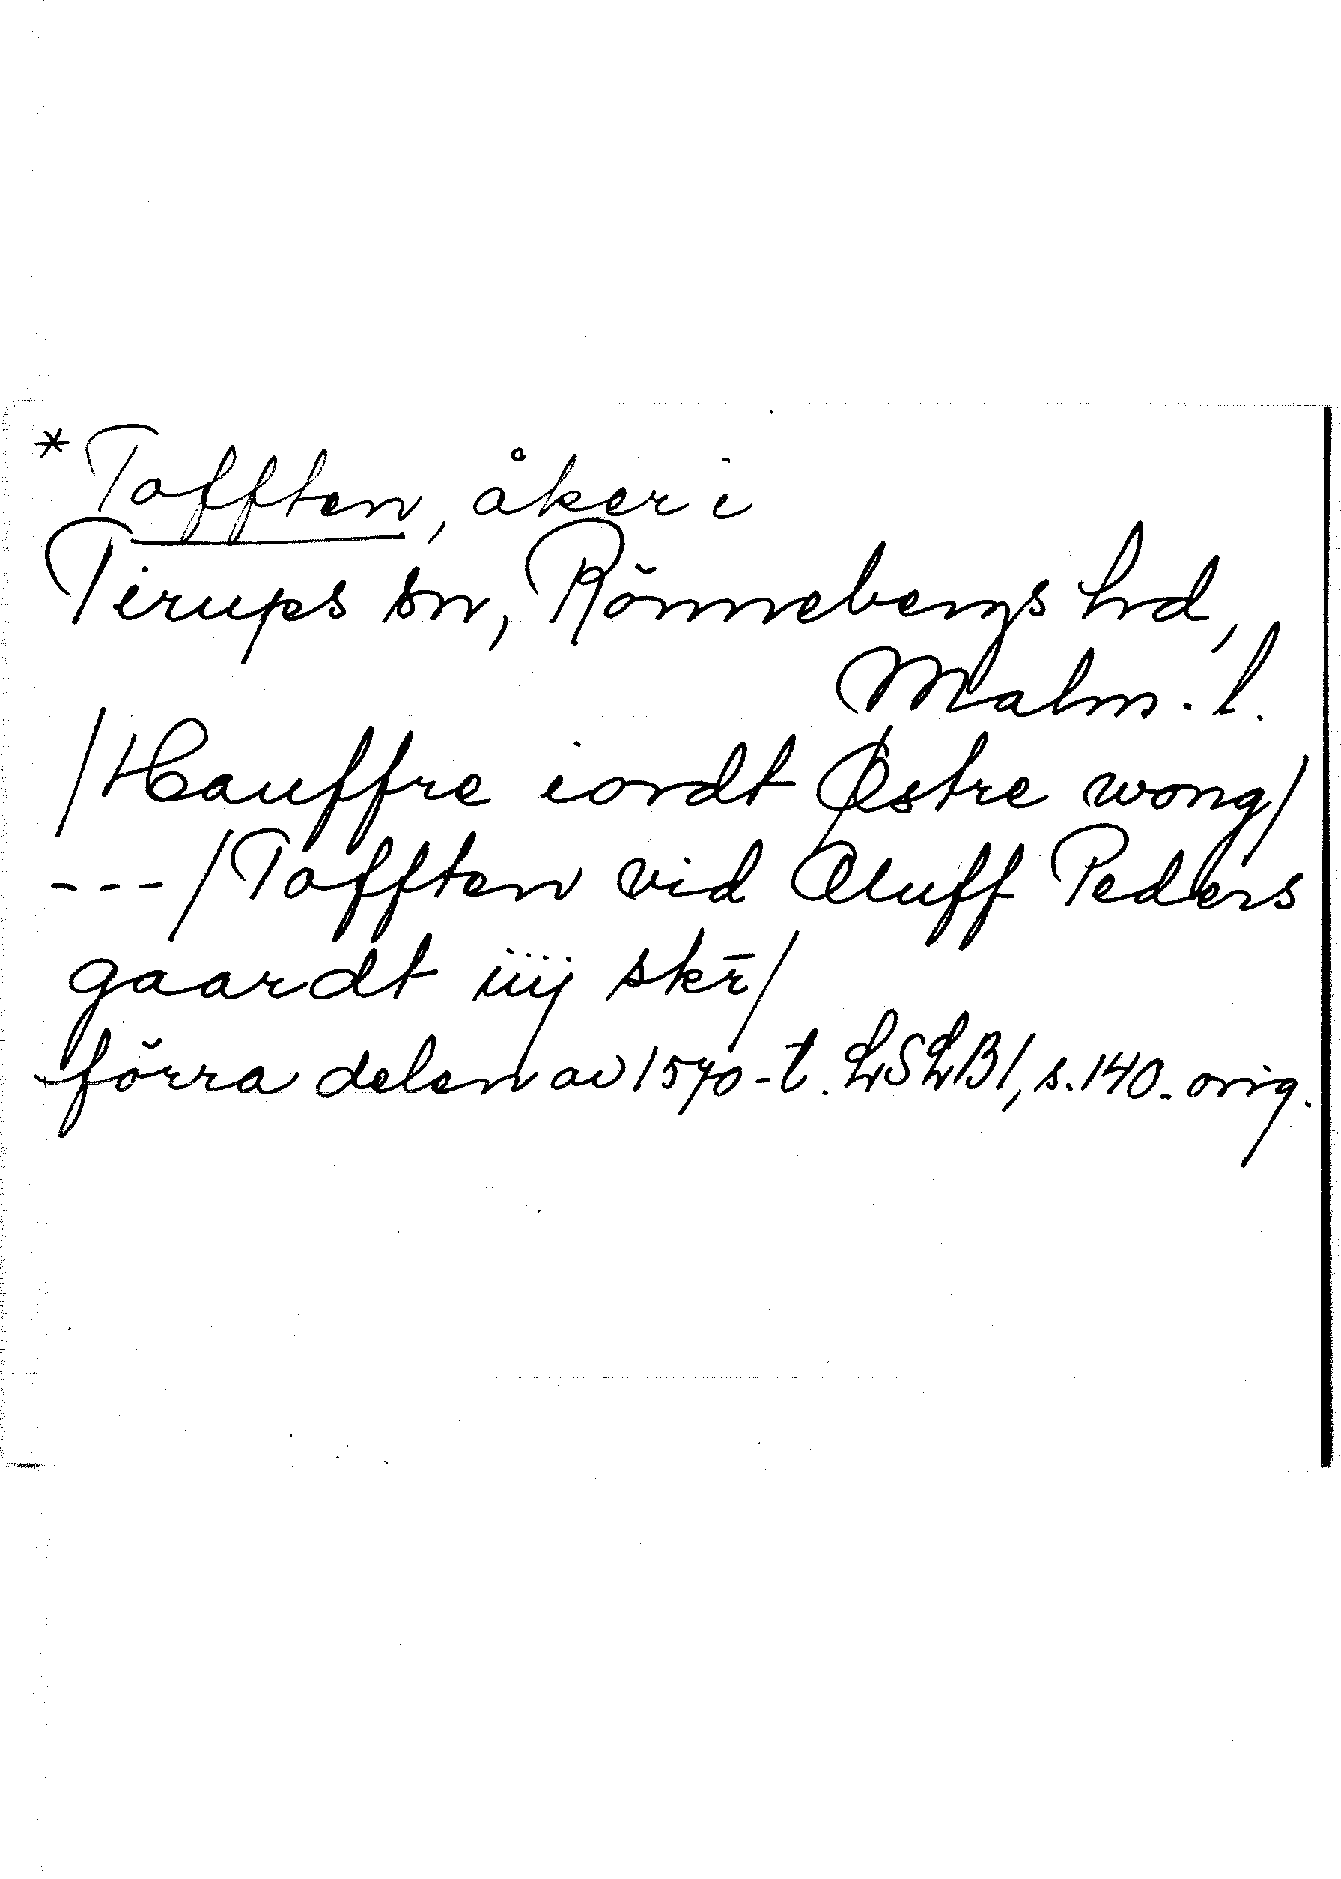 *Tofften, åker i
Tirups sn, Rönnebergs hd,
Malm. l.
/Hauffre iordt Østre wong/
---/Tofften vid Oluff Peders
gaardt iiij skr̄/
förra delen av 1570-t. LSLB1, s.140. orig.